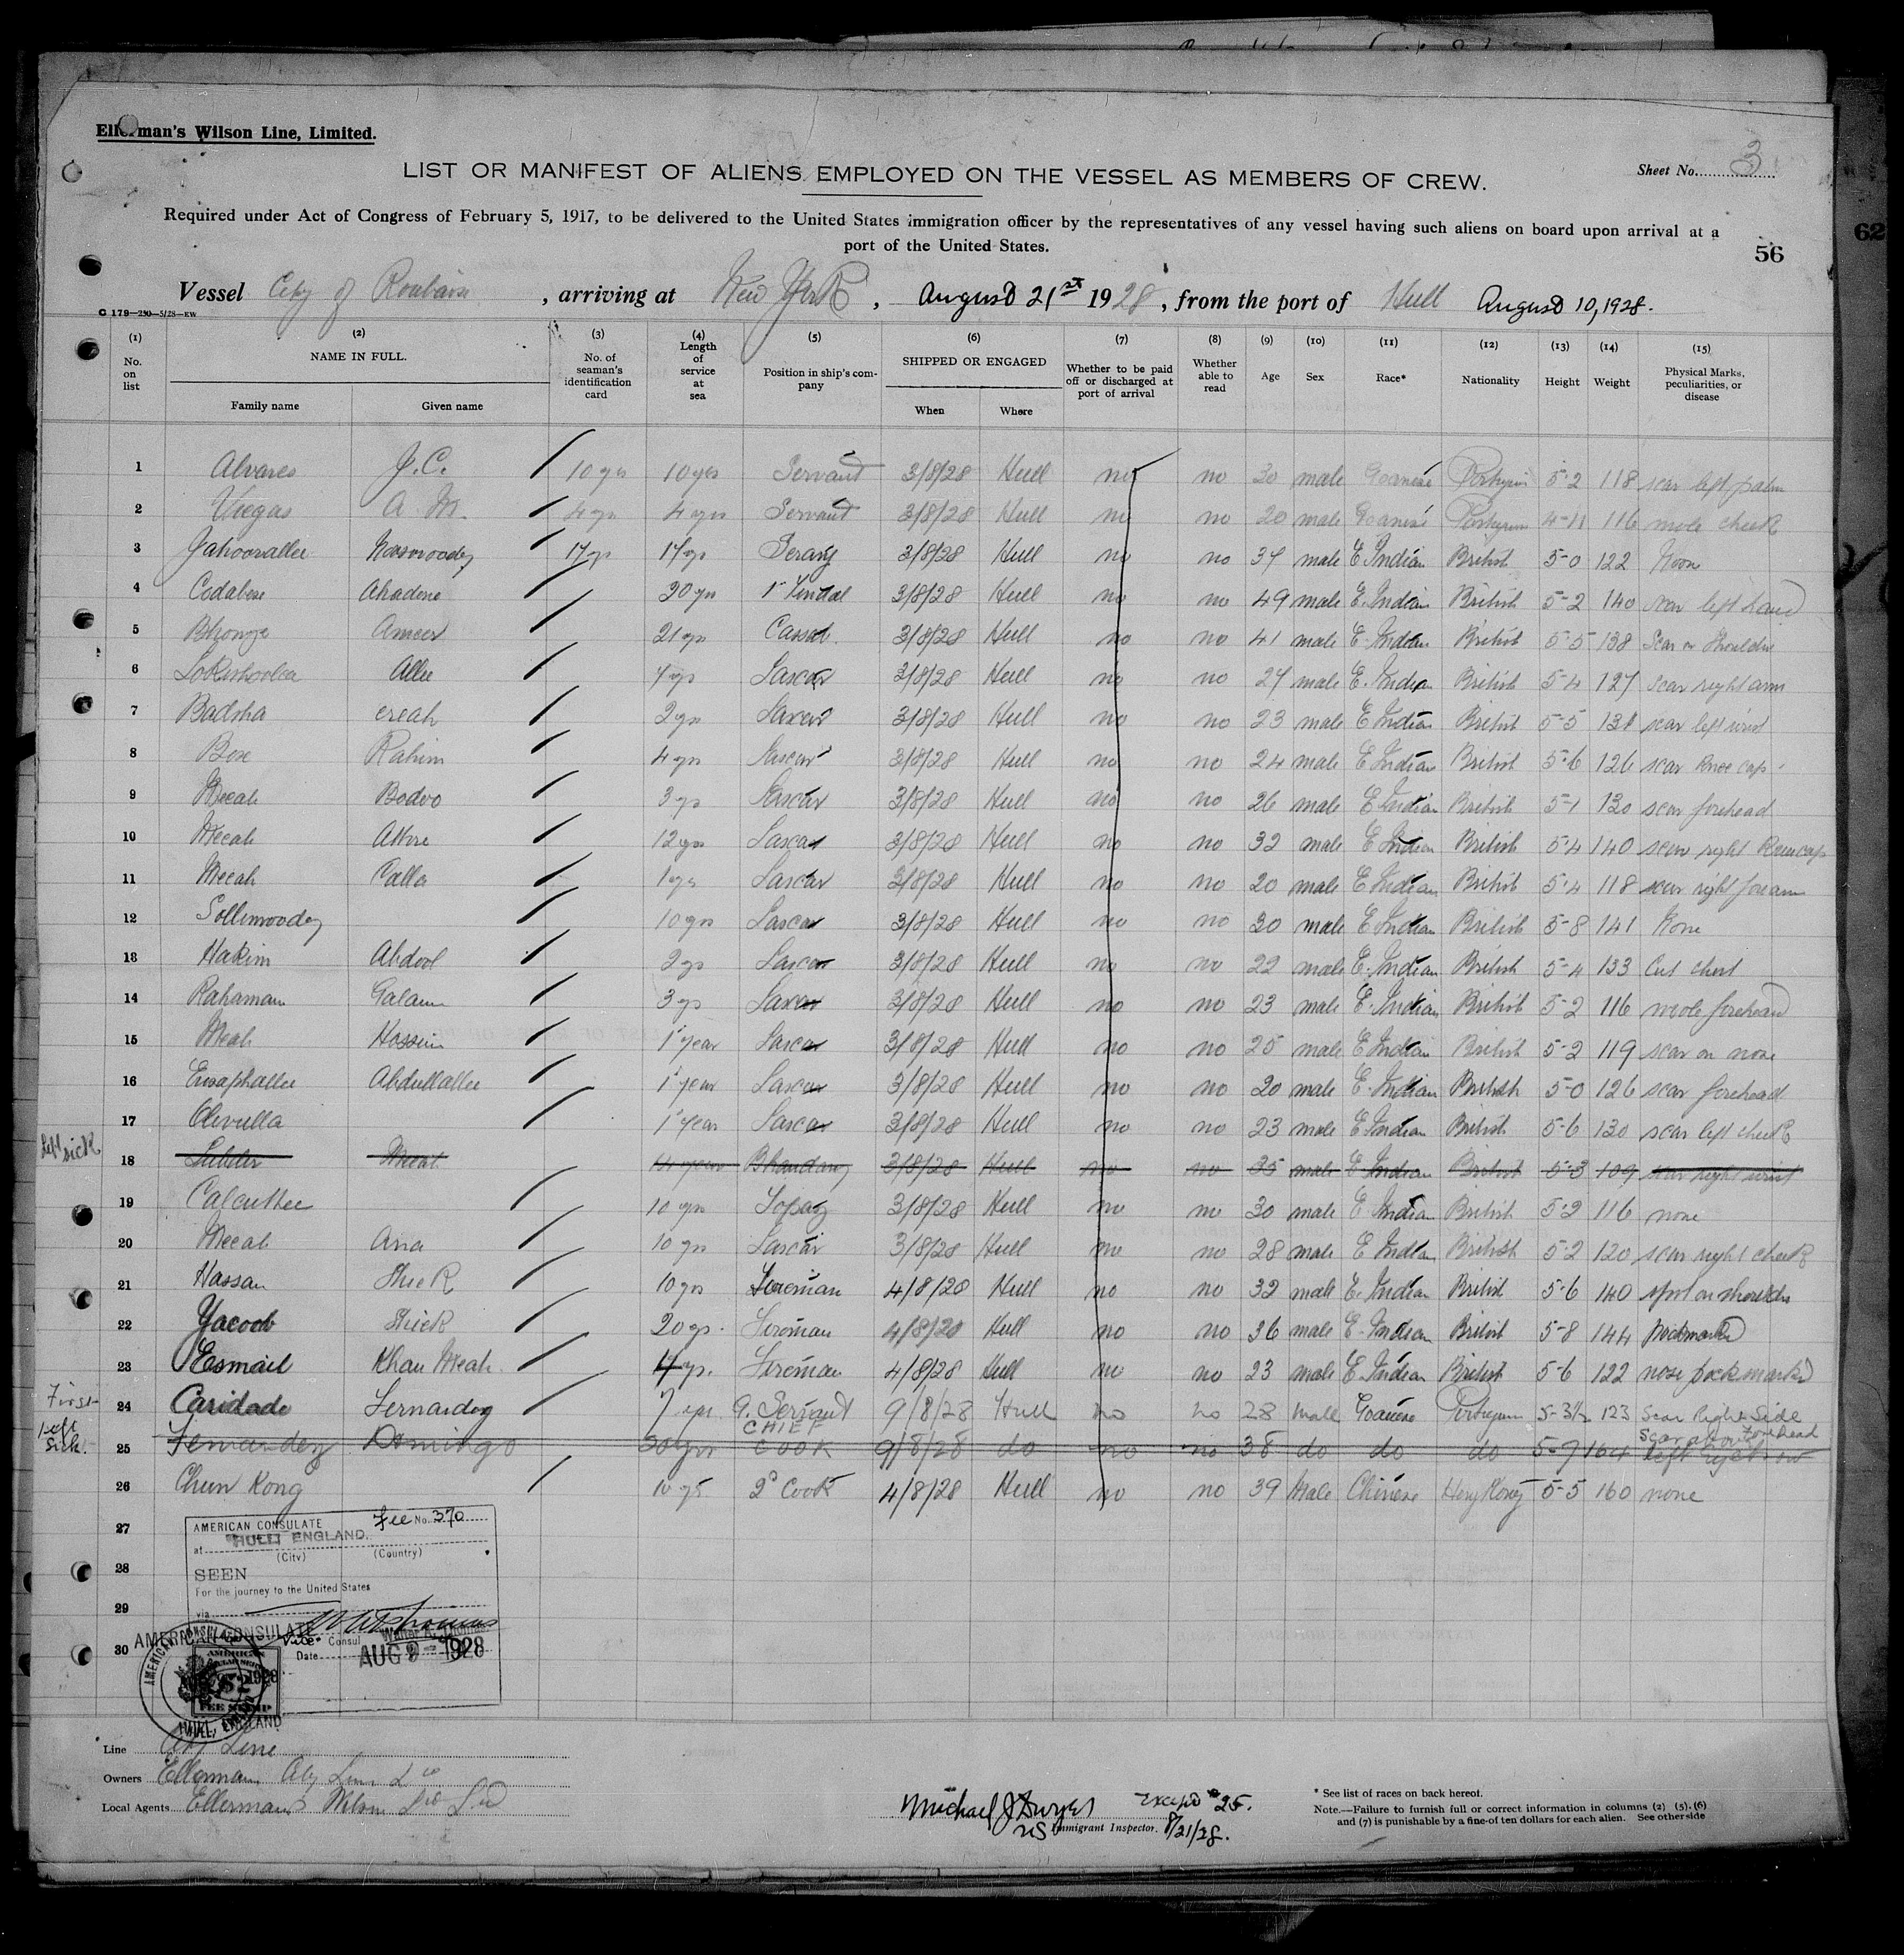 Ellerman's Wilson Line, Limited.
LIST OR MANIFEST OF ALIENS EMPLOYED ON THE VESSEL AS MEMBERS OF CREW.
Sheet No. 3
Required under Act of Congress of February 5, 1917, to be delivered to the United States immigration officer by the representatives of any vessel having such aliens on board upon arrival at a
port of the United States.
56
62
Vessel City of Roubaix, arriving at New York, August 21st 1928, from the port of Hull August 10, 1928.
C 179—250—5/28—EW
(1) No. on list (2) NAME IN FULL. Family name Given name (3) No. of seaman's identification card (4) Length of service at sea (5) Position in ship's company (6) SHIPPED OR ENGAGED When Where (7) Whether to be paid off or discharged at port of arrival (8) Whether able to read (9) Age (10) Sex (11) Race* (12) Nationality (13) Height (14) Weight (15) Physical Marks, peculiarities, or disease
1 Alvares J.C. 10 yrs 10 yrs Servant 3/8/28 Hull no no 30 male Goanese 5-2 118 scar left palm
2 Viegas A. M. 4 yrs 4 yrs Servant 3/8/28 Hull no no 20 male Goanese 4-11 116 mole cheek
3 17 yrs 17 yrs Serang 3/8/28 Hull no no 37 male E. Indian British 5-0 122 None
4 30 yrs 1st Tindal 3/8/28 Hull no no 49 male E. Indian British 5-2 140 scar left hand
5 Ameer 21 yrs Cassab 3/8/28 Hull no no 41 male E. Indian British 5-5 138 Scar on Shoulder
6 Allee 7 yrs Lascar 3/8/28 Hull no no 27 male E. Indian British 5-4 127 scar right arm
7 Badsha ereah 2 yrs Lascar 3/8/28 Hull no no 23 male E Indian British 5-5 131 scar left wrist
8 Box Rahim 4 yrs Lascar 3/8/28 Hull no no 24 male E Indian British 5-6 126 scar knee cap
9 Meeah Bodoo 3 yrs Lascar 3/8/28 Hull no no 26 male E Indian British 5-1 130 scar forehead
10 Meeah 12 yrs Lascar 3/8/28 Hull no no 32 male E Indian British 5-4 140 scar right kneecap
11 Meeah Calla 1 yr Lascar 3/8/28 Hull no no 20 male E Indian British 5-4 118 scar right forearm
12 Sollimoodey 10 yrs Lascar 3/8/28 Hull no no 30 male E Indian British 5-8 141 None
13 Hakim Abdool 2 yrs Lascar 3/8/28 Hull no no 22 male E. Indian British 5-4 133 Cut chest
14 Rahaman 3 yrs Lascar 3/8/28 Hull no no 23 male E. Indian British 5-2 116 mole forehead
15 Meah Hossein 1 year Lascar 3/8/28 Hull no no 25 male E Indian British 5-2 119 scar on nose
16 Abdullallee 1 year Lascar 3/8/28 Hull no no 20 male E. Indian British 5-0 126 scar forehead
17 Olevulla 1 year Lascar 3/8/28 Hull no no 23 male E Indian British 5-6 130 scar left cheek
Left sick
18 Meeah 4 years Bhandary 3/8/28 Hull no no 35 male E Indian British 5-3 109 scar right wrist
19 Calcuttee 10 yrs Topaz 3/8/28 Hull no no 30 male E Indian British 5-2 116 none
20 Meeah Ana 10 yrs Lascar 3/8/28 Hull no no 28 male E Indian British 5-2 120 scar right cheek
21 Hassan Shiek 10 yrs Fireman 4/8/28 Hull no no 32 male E. Indian British 5-6 140 spot on shoulder
22 Yacoob Shiek 20 yrs. Fireman 4/8/28 Hull no no 36 male E. Indian British 5-8 144 pockmarked
23 Esmail Khan Meah 4 yrs. Fireman 4/8/28 Hull no no 23 male E. Indian British 5-6 122 nose pockmarked
First
24 Caridade Fernandez 7 yrs G. Servant 9/8/28 Hull no no 28 male Goanese 5-3½ 123 Scar Right Side
Left Sick.
25 Fernandez Domingo 20 yrs CHIEF COOK 9/8/28 do no no 38 do do do 5-7 164 Scar above Forehead
26 Chun Kong 10 yrs 2nd Cook 4/8/28 Hull no no 39 Male Chinese Hong Kong 5-5 160 none
27
28
29
30
AMERICAN CONSULATE Fee No. 370
at HULL ENGLAND.
(City) (Country)
SEEN
For the journey to the United States
via
AMERICAN CONSULATE Vice Consul
Date AUG 9 - 1928
HULL, ENGLAND
Line City Line
Owners Ellerman City Line Ld
Local Agents Ellerman's Wilson Line Ld
Michael J Dwyer except # 25.
US Immigrant Inspector. 8/21/28.
* See list of races on back hereof.
Note.—Failure to furnish full or correct information in columns (2) (5), (6)
and (7) is punishable by a fine of ten dollars for each alien. See other side